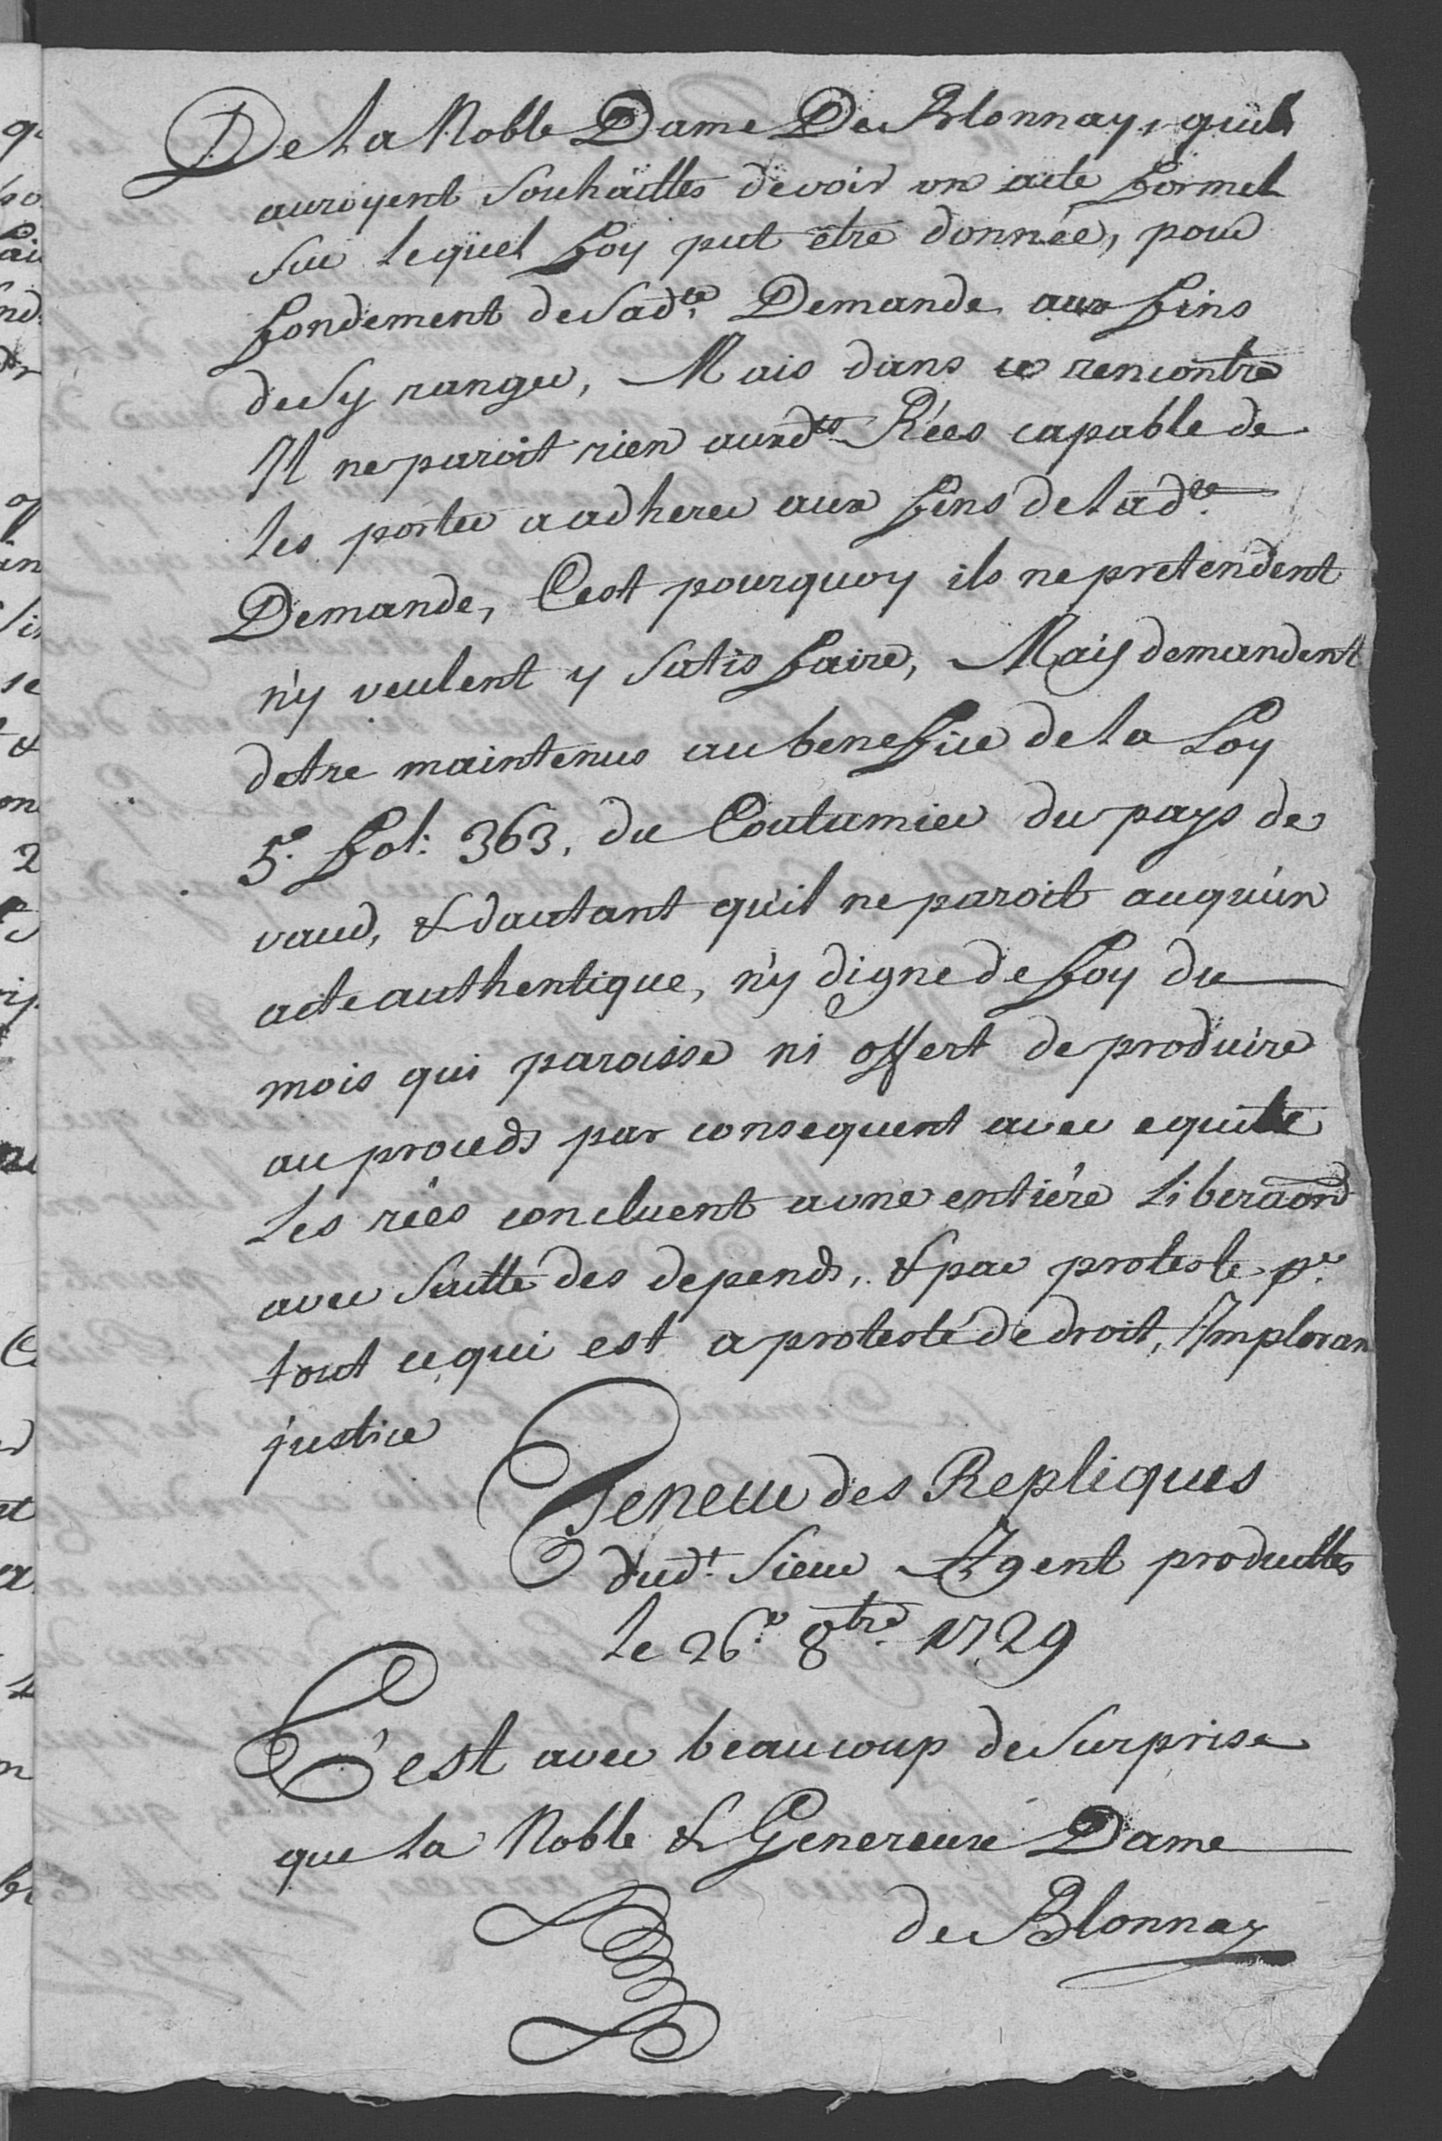 De la Noble Dame De Blonnay, quils
auroyent souhaittes de voir un acte formel
sur lequel foy put etre donnée, pour
fondement de sadte. Demande aux fins
de sy ranger, Mais dans ce rencontre
Il ne paroit rien auxdts Rées capable de
les porter a adherer aux fins de ladte.
Demande, C'est pourquoy ils ne pretendent
n'y veulent y satisfaire, Mais demandent
detre maintenus au benefice de la Loy
5e. fol: 363, du Coutumier du pays de
vaud, & dautant qu'il ne paroit auqu'un
acte authentique, n'y digne de foy du
mois qui paroisse ni offert de produire
au proceds par consequent avec equité
Les rées concluent a une entiére Liberaōn
avec suitte des depends, & par proteste pr.
tout ce qui est a protesté de droit, Imploran
justice
Teneur des Repliques
dudt. Sieur Agent produittes
le 26e. 8bre. 1729
C'est avec beaucoup de surprise
que la Noble & Genereuse Dame
de Blonnay